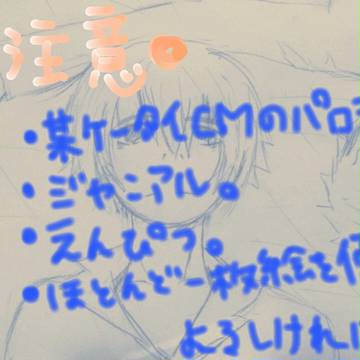 注意。
・某ケータイCMのパロ
・ジャニアル。
・えんぴつ。
・ほとんど一枚絵を使
よろしければ